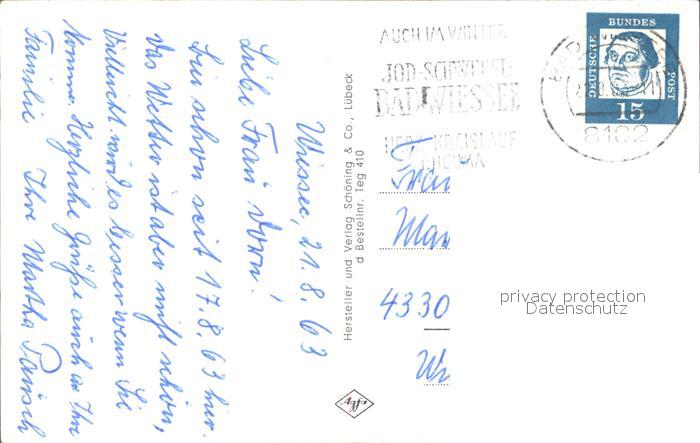 Wiessee, 21.8.63
Liebe Frau Dorn!
Bin schon seit 17.8.63 hier.
Das Wetter ist aber nicht schön,
Vielleicht wird es besser wenn Sie
komme. Herzliche Grüße auch an Ihre
Familie Ihre Martha
Hersteller und Verlag Schöning & Co., Lübeck
Bestellnr. Teg 410
Agfa
AUCH IM WINTER
JOD-SCHWEFEL-
BAD WIESSEE
HERZ-KREISLAUF
RHEUMA
BAD
8182
DEUTSCHE BUNDES POST
15
Frau
4330
privacy protection
Datenschutz